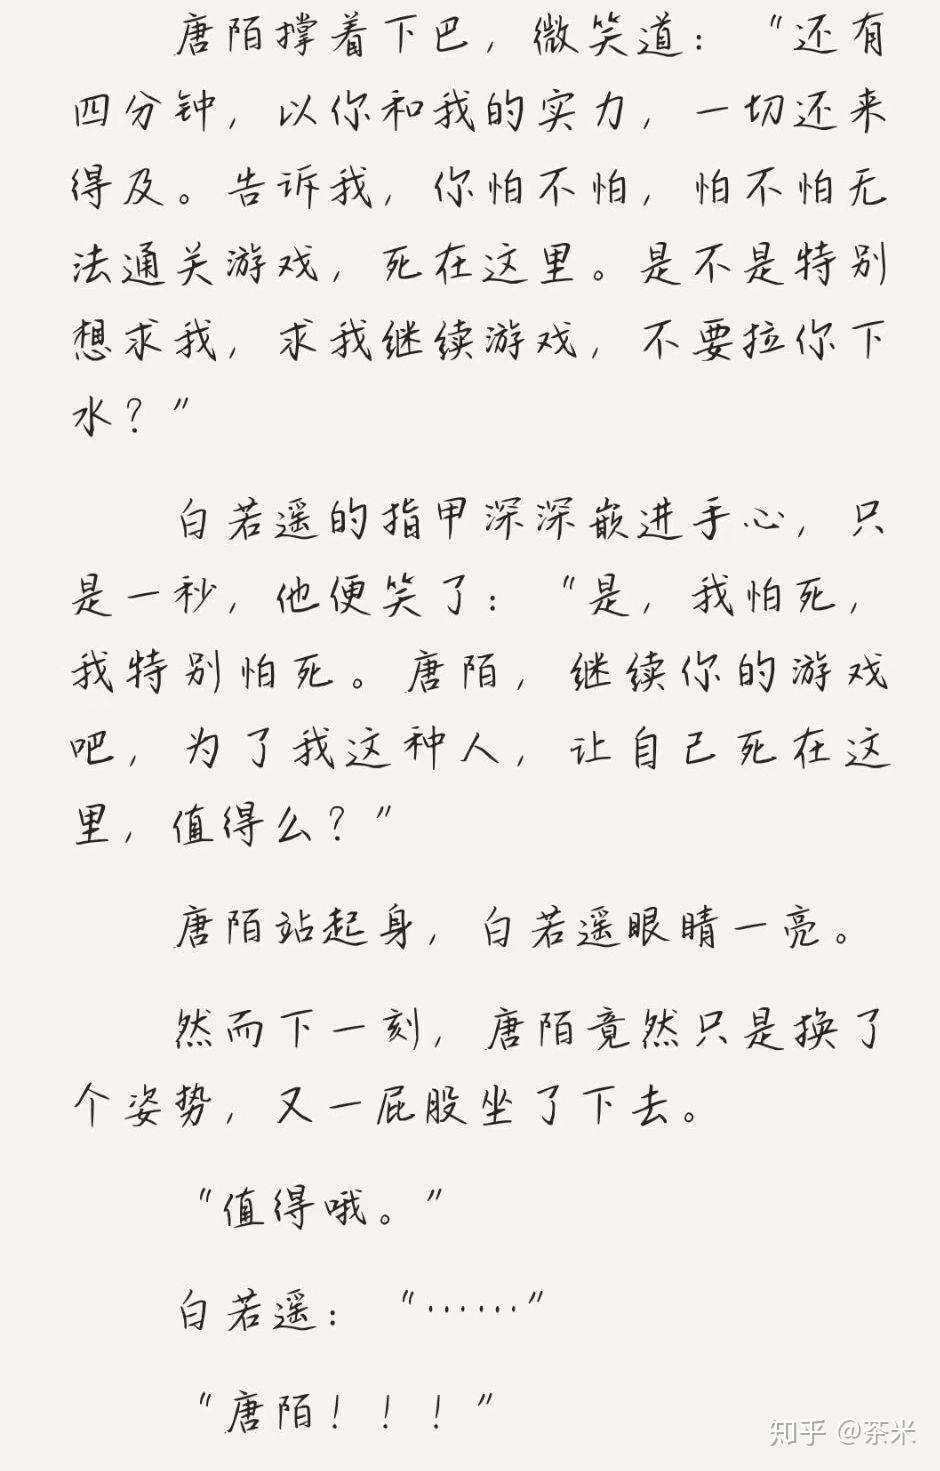 唐陌撑着下巴，微笑道：“还有
四分钟，以你和我的实力，一切还来
得及。告诉我，你怕不怕，怕不怕无
法通关游戏，死在这里。是不是特别
想求我，求我继续游戏，不要拉你下
水？”
白若遥的指甲深深嵌进手心，只
是一秒，他便笑了：“是，我怕死，
我特别怕死。唐陌，继续你的游戏
吧，为了我这种人，让自己死在这
里，值得么？”
唐陌站起身，白若遥眼睛一亮。
然而下一刻，唐陌竟然只是换了
个姿势，又一屁股坐了下去。
“值得哦。”
白若遥：“……”
“唐陌！！！”
知乎 @茶米